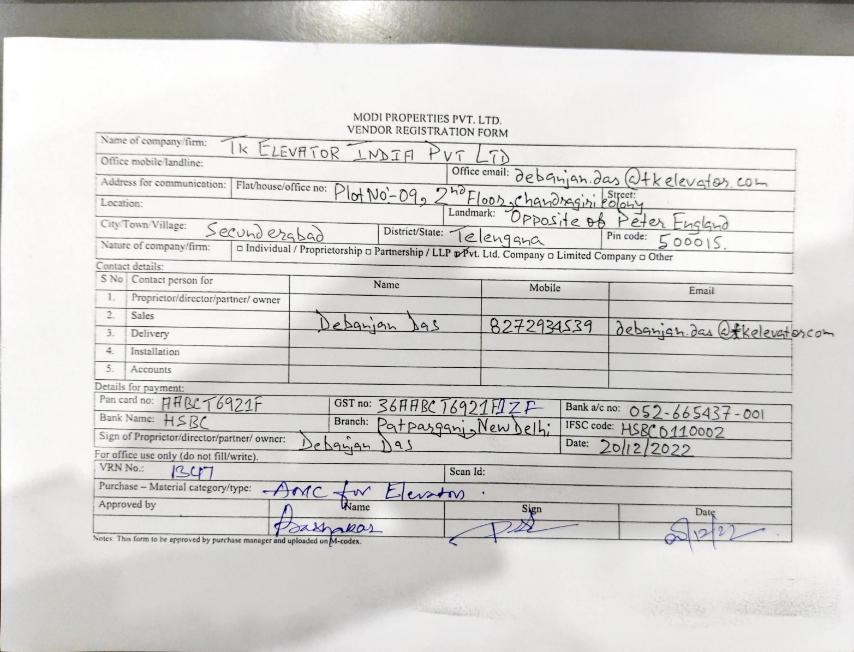 MODI PROPERTIES PVT. LTD.
VENDOR REGISTRATION FORM
Name of company/firm: TK ELEVATOR INDIA PVT LTD
Office mobile/landline: Office email: debanjan.das@tkelevator.com
Address for communication: Flat/house/office no: Plot No-09, 2nd Floor, chandragiri colony Street:
Location: Landmark: Opposite of Peter England
City/Town/Village: Secunderabad District/State: Telengana Pin code: 500015.
Nature of company/firm: □ Individual / Proprietorship □ Partnership / LLP ☑ Pvt. Ltd. Company □ Limited Company □ Other
Contact details:
S No Contact person for Name Mobile Email
1. Proprietor/director/partner/ owner
2. Sales Debanjan Das 8272934539 debanjan.das@tkelevator.com
3. Delivery
4. Installation
5. Accounts
Details for payment:
Pan card no: AABCT6921F GST no: 36AABCT6921F1ZF Bank a/c no: 052-665437-001
Bank Name: HSBC Branch: Patparganj, New Delhi IFSC code: HSBC0110002
Sign of Proprietor/director/partner/ owner: Debanjan Das Date: 20/12/2022
For office use only (do not fill/write).
VRN No.: 1347 Scan Id:
Purchase – Material category/type: - AMC for Elevators.
Approved by Name Sign Date
/12/22
Notes: This form to be approved by purchase manager and uploaded on M-codex.